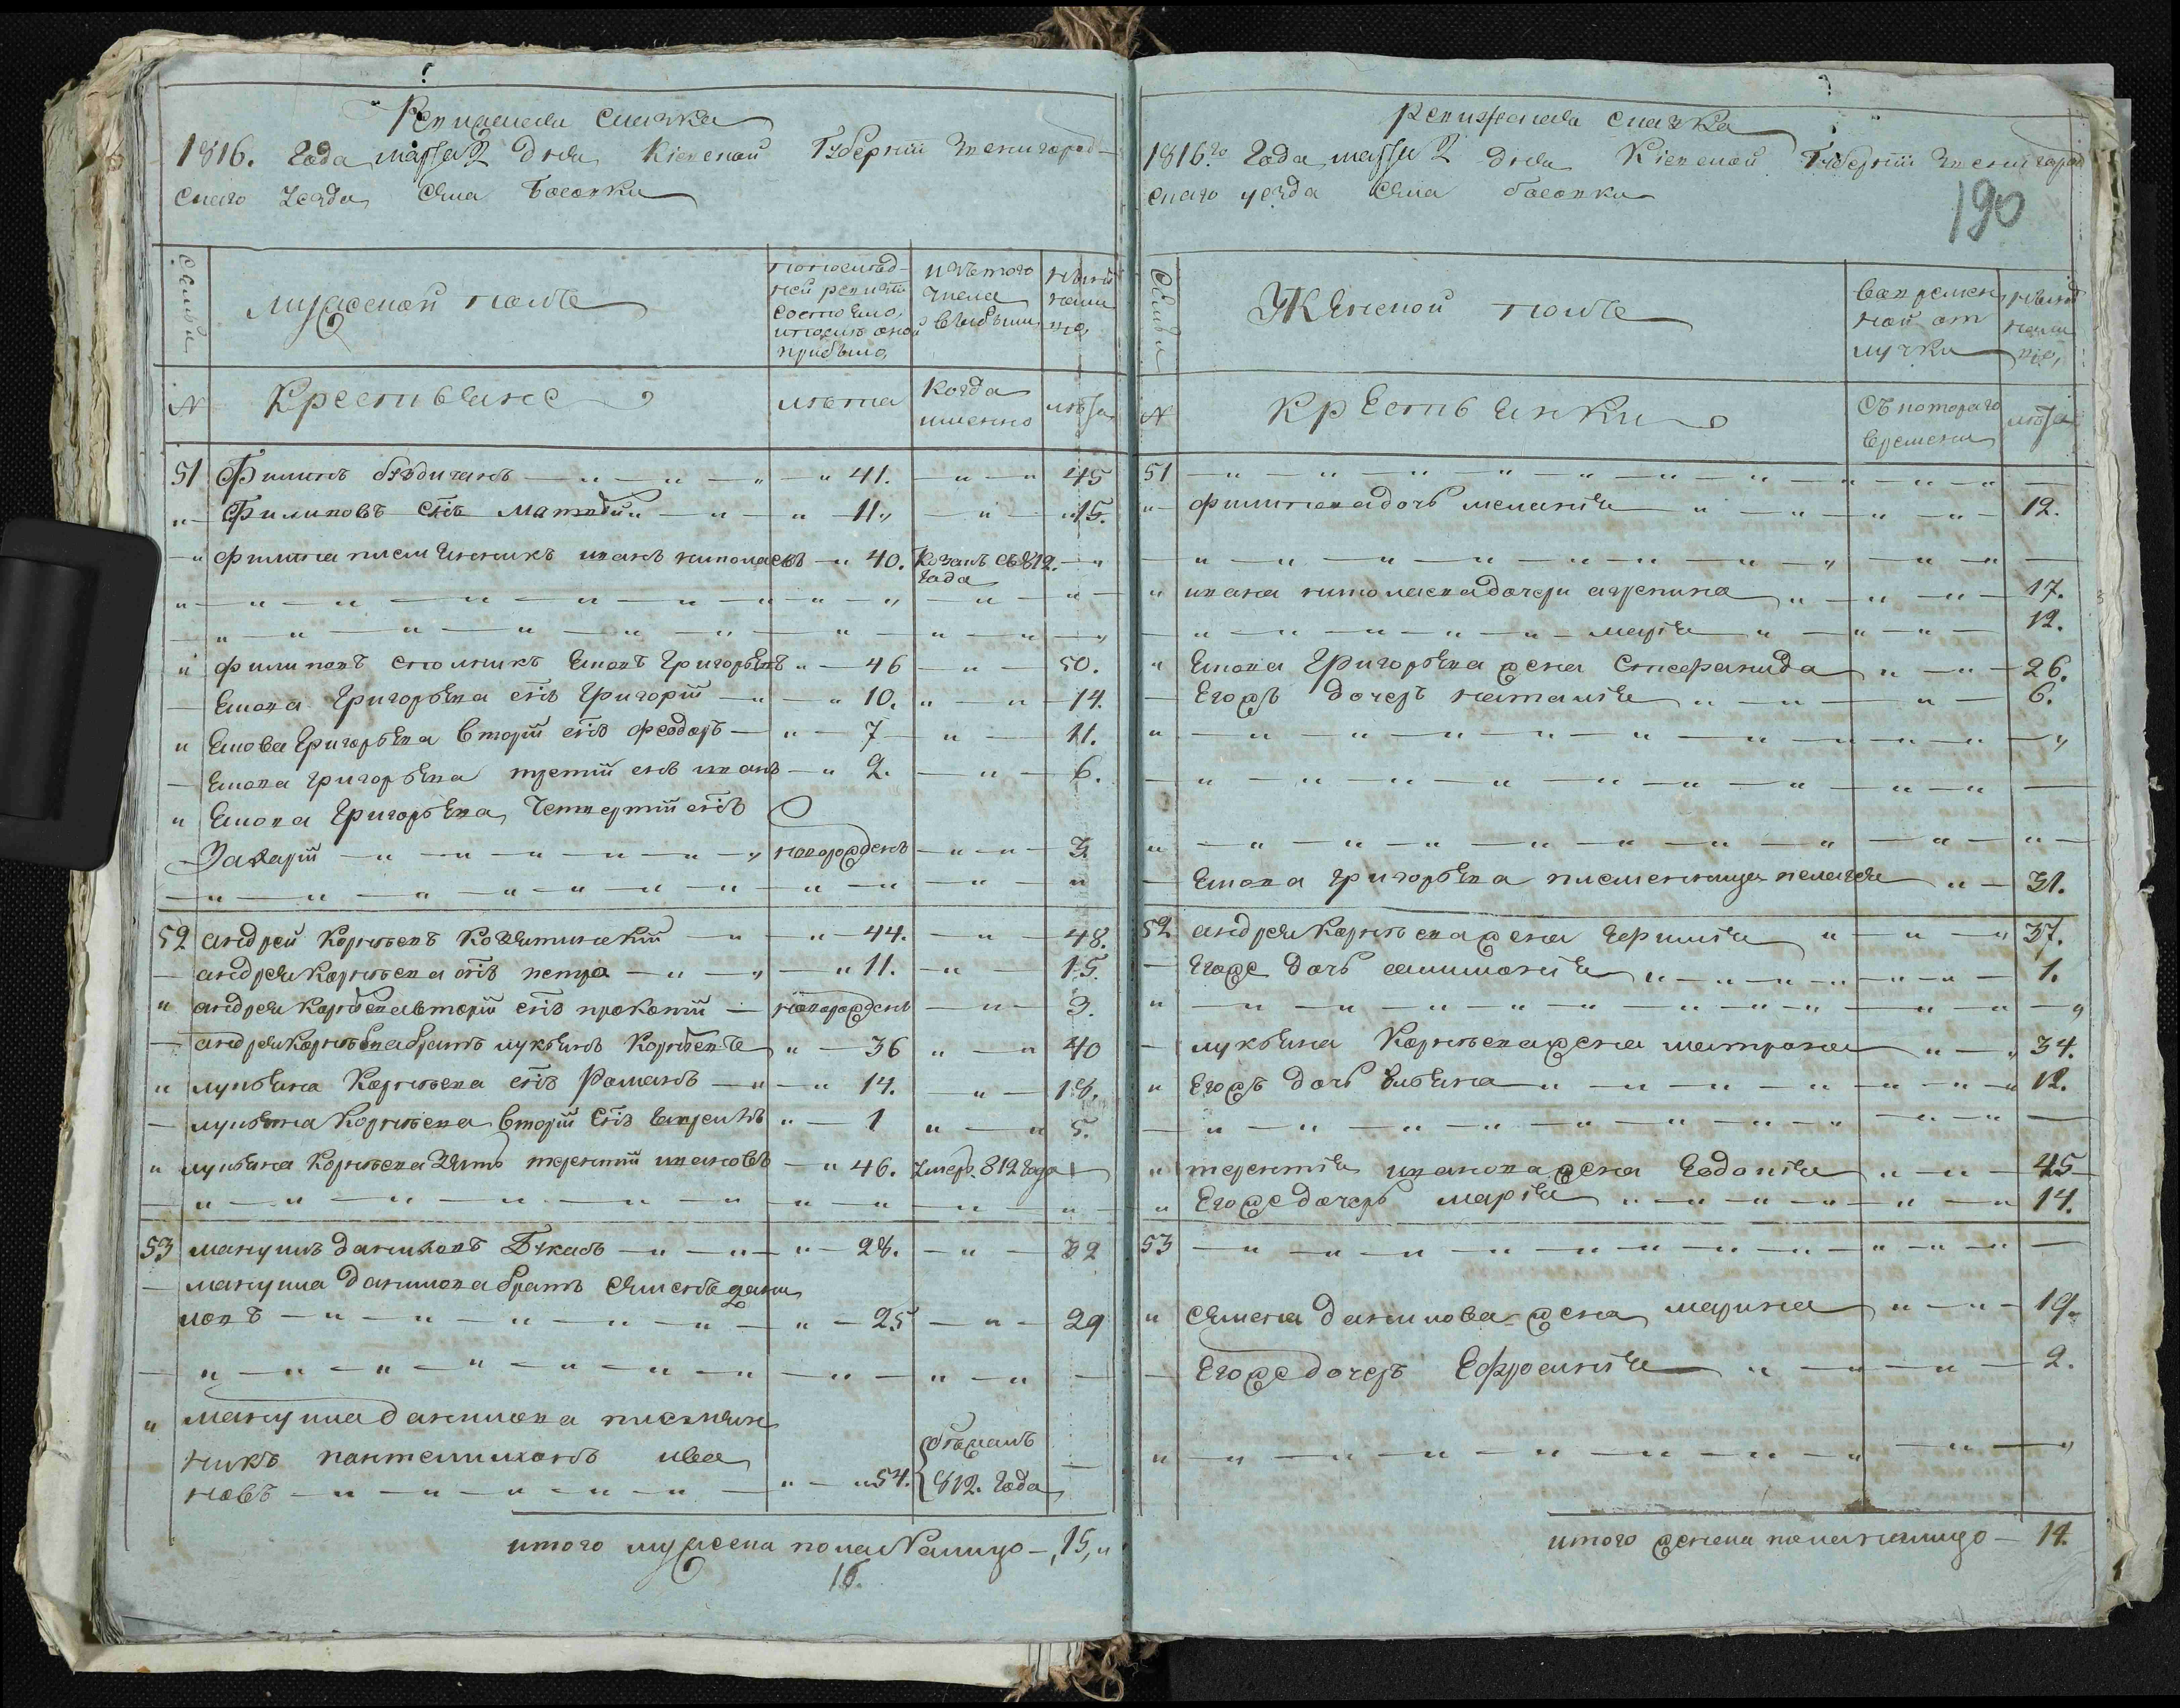 Ревизская сказка
1816. Года марта 2 дня Киевской Губернии Звенигород-
скаго уезда села Босовки
семьи
мужеской полъ
по последней ревизіи состояло, и после оной прибыло
изъ того числа выбыло
ныне на лицо
N
Крестьяне
лета
когда именно
лета
51 Филипъ 41. 45
Филиповъ снъ Матвей 11 15.
Филипа племенникъ иванъ николаевъ 40. Козакъ съ 812. года
филиповъ Емовъ Григорьевъ 46 50.
Емова Григорьева снъ Григорій 10. 14.
Емова Григорьева вторій снъ феодоръ 7 11.
Емова Григорьева третій снъ иванъ 2. 6.
Емова Григорьева четвертій снъ
Захарій новорожденъ 3.
52 андрей Корнѣевъ 44. 48.
андрея Корнѣева снъ петро 11. 15.
андрея Корнѣева вторій снъ прокопій новорожденъ 3.
андрея Корнѣева братъ лукьянъ Корнѣевъ 36 40
лукьяна Корнѣева снъ Романъ 14. 18.
лукьяна Корнѣева вторій снъ 1 5.
лукьяна Корнѣева зять терентій ивановъ 46. умеръ 812 года
53 даниловъ 28. 32
данилова братъ Семенъ дани
ловъ 25 29
данилова племян
никъ пантелимонъ ива
новъ 54. бежалъ 812. Года
итого мужеска пола налицо 15
16.
Ревизская сказка
1816го Года марта 2 дня Кіевской Губерніи Звенигород
скаго уезда села босовки
190
Семьи
Женской полъ
во временной отлучки
ныне на лицо
N
Крестьянки
съ котораго времени
лета
51
филипова дочь меланія 12.
ивана николаева дочери агрепина 17.
марія 12.
Емова Григорьева жена Стефанида 26.
Егожъ дочерь наталія 6.
Емова григорьева племенница пелагея 31.
52 андрея Корнѣева жена 37.
Егоже дочь 1.
лукьяна Корнѣева жена матрона 34.
Егожъ дочь 12.
терентія иванова жена Евдокія 45
Егоже дочерь марія 14.
53
Семена данилова жена марина 19.
Егоже дочерь Ефросинія 2.
итого женска пола налицо 14.